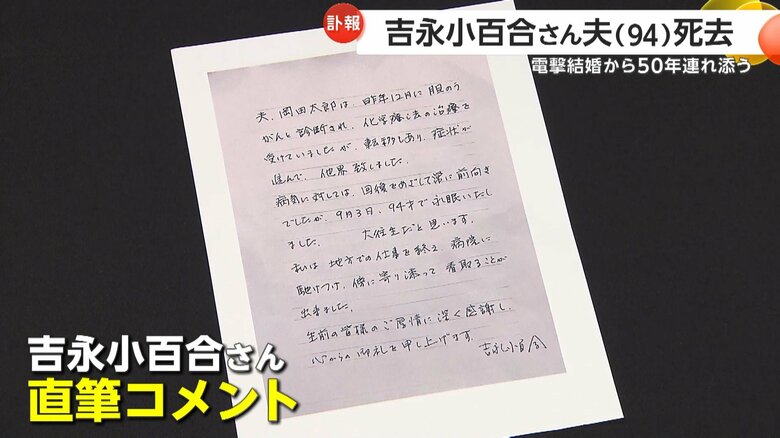 訃報
吉永小百合さん夫(94)死去
電撃結婚から50年連れ添う
夫、岡田太郎は、昨年12月に胆のう
がんと診断され、化学療法の治療を
受けていましたが、転移しあり、症状が
進んで、他界致しました。
病気に対しては、回復をめざして常に前向き
でしたが、9月3日、94才で永眠いたし
ました。 大往生だと思います。
私は 地方での仕事を終え 病院に
駆けつけ、傍に寄り添って 看取ることが
出来ました。
生前の皆様のご厚情に深く感謝し、
心からの御礼を申し上げます。
吉永小百合
吉永小百合さん
直筆コメント